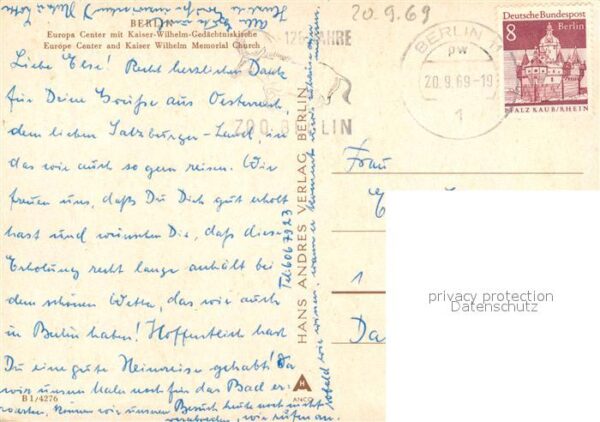 20.9.69
BERLIN
Europa Center mit Kaiser-Wilhelm-Gedächtniskirche
Europe Center and Kaiser Wilhelm Memorial Church
125 JAHRE
ZOO BERLIN
BERLIN 11
pw
20.9.69-19
1
Deutsche Bundespost
8 Berlin
PFALZ KAUB/RHEIN
Liebe Else! Recht herzlichen Dank
für Deine Grüße aus Oesterreich,
dem lieben Salzburger-Land, in
das wir auch so gern reisen. Wir
freuen uns, daß Du Dich gut erholt
hast und wünschen Dir, daß diese
Erholung recht lange anhält bei
dem schönen Wetter, das wir auch
in Berlin haben! Hoffentlich hast
Du eine gute Heimreise gehabt! Da
wir unseren Maler noch für das Bad er-
warten, können wir unseren Besuch heute noch nicht
verabreden, wir rufen an.
sobald wir wissen, wann er kommt
Tel: 606 79 23
HANS ANDRES VERLAG, BERLIN
Frau
1
Da
B 1/4276
ANCO
privacy protection
Datenschutz